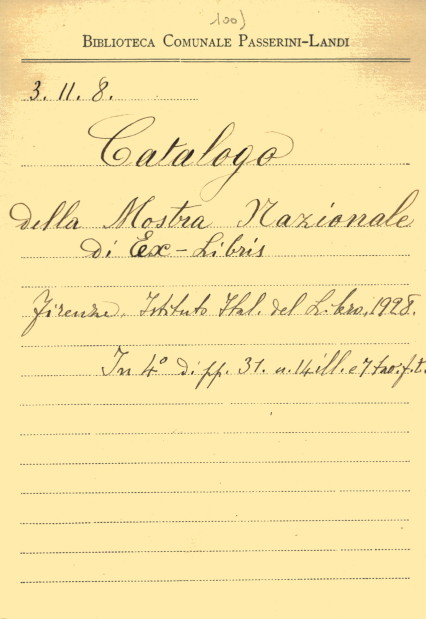 100)
BIBLIOTECA COMUNALE PASSERINI-LANDI
3. 11. 8.
Catalogo
della Mostra Nazionale
di Ex-Libris
Firenze, Istituto Ital. del Libro, 1928.
In 4° di pp. 31. 14 ill. e 7 tav. f. t.